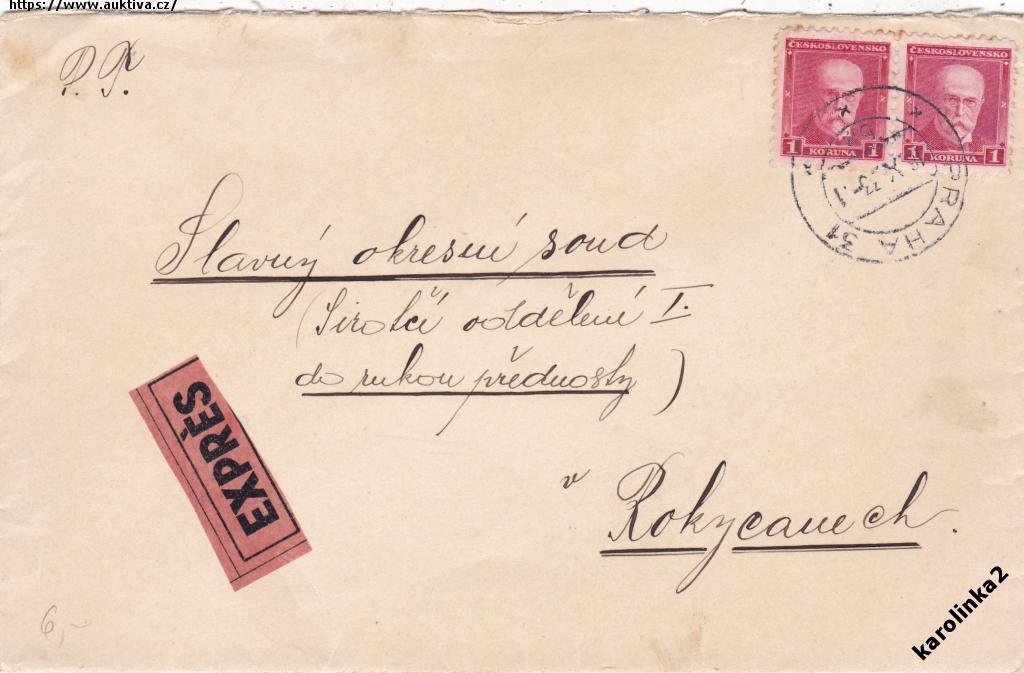 https://www.auktiva.cz/
P. T.
ČESKOSLOVENSKO ČESKOSLOVENSKO
1 KORUNA 1 1 KORUNA 1
PRAHA 31
Slavný okresní soud
(Sirotčí oddělení I.
do rukou přednosty)
v Rokycanech.
EXPRÈS
6,-
karolinka2